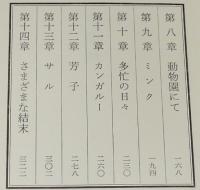 第八章 動物園にて 一六八
第九章 ミンク 一九四
第十章 多忙の日々 二三〇
第十一章 カンガルー 二六〇
第十二章 芳子 二七八
第十三章 サル 三〇二
第十四章 さまざまな結末 三二二